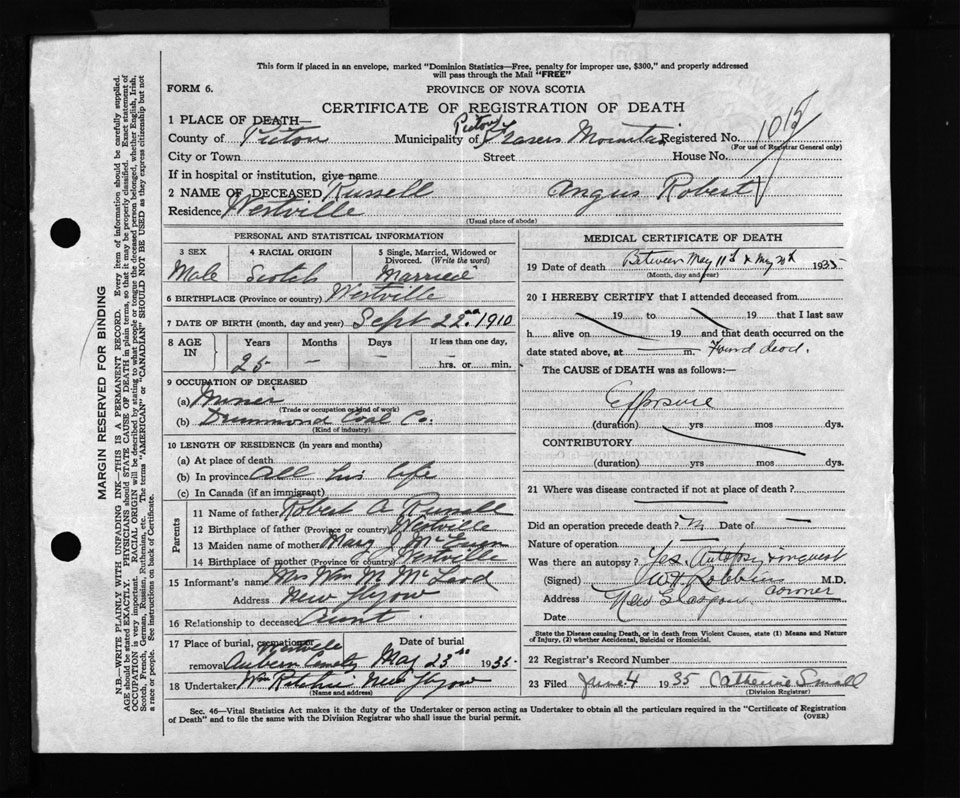 This form if placed in an envelope, marked "Dominion Statistics—Free, penalty for improper use, $300," and properly addressed
will pass through the Mail "FREE"
FORM 6.
PROVINCE OF NOVA SCOTIA
CERTIFICATE OF REGISTRATION OF DEATH
1 PLACE OF DEATH—
County of Pictou Municipality of Pictou Frasers Mountain Registered No. 1015
(For use of Registrar General only)
City or Town Street House No.
If in hospital or institution, give name
2 NAME OF DECEASED Russell Angus Robert
Residence Westville
(Usual place of abode)
PERSONAL AND STATISTICAL INFORMATION
3 SEX 4 RACIAL ORIGIN 5 Single, Married, Widowed or Divorced. (Write the word)
Male Scotch Married
6 BIRTHPLACE (Province or country) Westville
7 DATE OF BIRTH (month, day and year) Sept 22nd 1910
8 AGE IN Years Months Days If less than one day,
25 — — — hrs. or min.
9 OCCUPATION OF DECEASED
(a) Miner
(Trade or occupation or kind of work)
(b) Drummond Coal Co.
(Kind of industry)
10 LENGTH OF RESIDENCE (in years and months)
(a) At place of death
(b) In province All his life
(c) In Canada (if an immigrant)
Parents
11 Name of father Robert A Russell
12 Birthplace of father (Province or country) Westville
13 Maiden name of mother Mary J McEwen
14 Birthplace of mother (Province or country) Westville
15 Informant's name Mrs Wm M
Address New Glasgow
16 Relationship to deceased Aunt
17 Place of burial, cremation or Westville Date of burial
removal Auburn Cemetery May 23rd 1935
18 Undertaker Wm Ritchie New Glasgow
(Name and address)
MEDICAL CERTIFICATE OF DEATH
19 Date of death Between May 11th & May 1935
(Month, day and year)
20 I HEREBY CERTIFY that I attended deceased from
19 to 19 that I last saw
h alive on 19 and that death occurred on
date stated above, at m. Found dead.
The CAUSE of DEATH was as follows:—
(duration) yrs mos dys.
CONTRIBUTORY
(duration) yrs mos dys.
21 Where was disease contracted if not at place of death?
Did an operation precede death? Date of —
Nature of operation —
Was there an autopsy? Yes. Autopsy & inquest
(Signed) W H Robbins M.D.
coroner
Address New Glasgow
Date
State the Disease causing Death, or in death from Violent Causes, state (1) Means and Nature
of Injury, (2) whether Accidental, Suicidal or Homicidal.
22 Registrar's Record Number
23 Filed June 4 1935 Catherine Small
(Division Registrar)
Sec. 46—Vital Statistics Act makes it the duty of the Undertaker or person acting as Undertaker to obtain all the particulars required in the "Certificate of Registration
of Death" and to file the same with the Division Registrar who shall issue the burial permit.
(OVER)
MARGIN RESERVED FOR BINDING
N.B.—WRITE PLAINLY WITH UNFADING INK—THIS IS A PERMANENT RECORD. Every item of information should be carefully supplied.
AGE should be stated EXACTLY. PHYSICIANS should STATE CAUSE OF DEATH in plain terms, so that it may be properly classified. Exact statement of
OCCUPATION is very important. RACIAL ORIGIN will be described by stating to what people or tongue the deceased person belonged, whether English, Irish,
Scotch, French, German, Russian, Ruthenian, etc. The terms "AMERICAN" or "CANADIAN" SHOULD NOT BE USED as they express citizenship but not
a race or people. See instructions on back of Certificate.